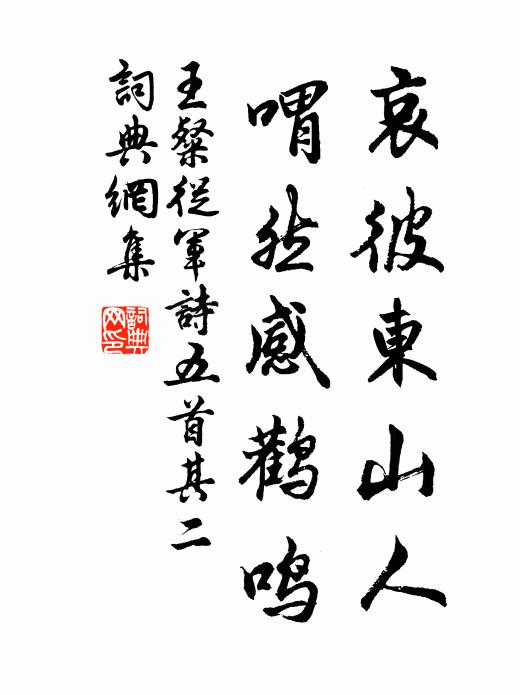 哀彼東山人
喟然感鹳鸣
王粲從軍詩五首其二
詞典網集
詞典网印